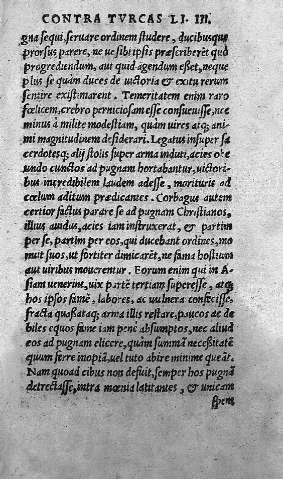 CONTRA TVRCAS LI. III.
gna sequi, seruare ordinem studere, ducibusque
prorsus parere, ne ue sibi ipsis præscriberēt quo
progrediendum, aut quid agendum esset, neque
plus se quàm duces de uictoria & exitu rerum
sentire existimarent. Temeritatem enim raro
fœlicem, crebro perniciosam esse consueuisse, nec
minus à milite modestiam, quàm uires atq; ani
mi magnitudinem desiderari. Legatus insuper sa
cerdotesq; alij stolis super arma induti, acies obe
undo cunctos ad pugnam hortabantur, uictori-
bus incredibilem laudem adesse, morituris ad
cœlum aditum prædicantes. Corbagus autem
certior factus parare se ad pugnam Christianos,
illius audus, acies iam instruxerat, & partim
per se, partim per eos, qui ducebant ordines, mo
nuit suos, ut fortiter dimicarēt, ne fama hostium
aut uiribus mouerentur. Eorum enim qui in A-
siam uenerint, uix partē tertiam superesse, atq;
hos ipsos famē, labores, ac uulnera confecisse,
fracta quassataq; arma illis restare, paucos ac de
biles equos fame iam penè absumptos, nec aliud
eos ad pugnam elicere, quàm summā necessitatē
quum ferre inopiā, uel tuto abire minime queāt.
Nam quoad cibus non defuit, semper hos pugnā
detrectasse, intra mœnia latitantes, & unicam
spem